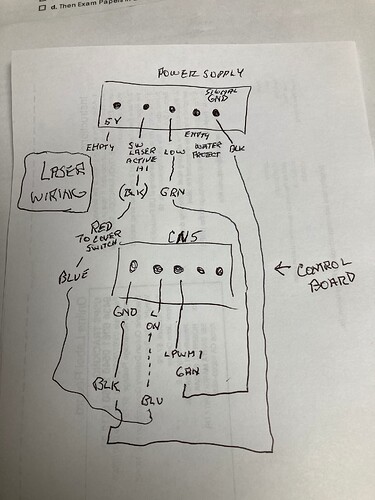 d. Then Exam Papers in
POWER SUPPLY
SIGNAL
GND
5V
EMPTY
SW
LASER
ACTIVE
HI
LOW
EMPTY
WATER
PROTECT
BLK
LASER
WIRING
(BLK)
GRN
RED
TO COVER
SWITCH
CN5
BLUE
← CONTROL
BOARD
GND
L
ON
LPWM1
GRN
BLK
BLU